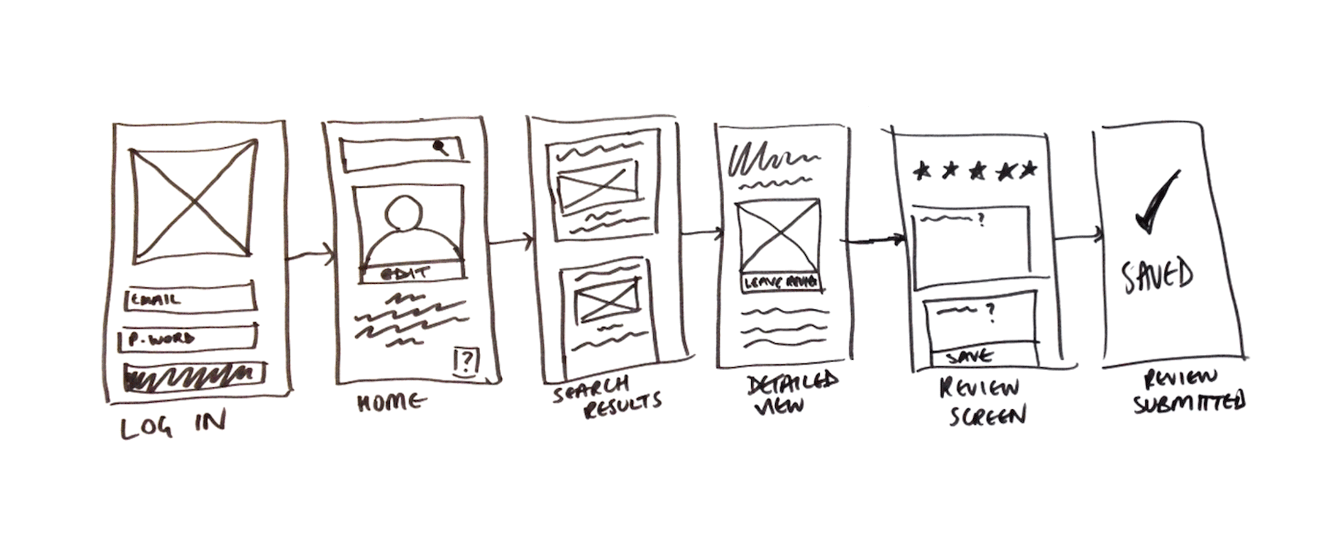 EMAIL
P.WORD
LOG IN
EDIT
?
HOME
SEARCH
RESULTS
LEAVE REVIEW
DETAILED
VIEW
?
?
SAVE
REVIEW
SCREEN
SAVED
REVIEW
SUBMITTED